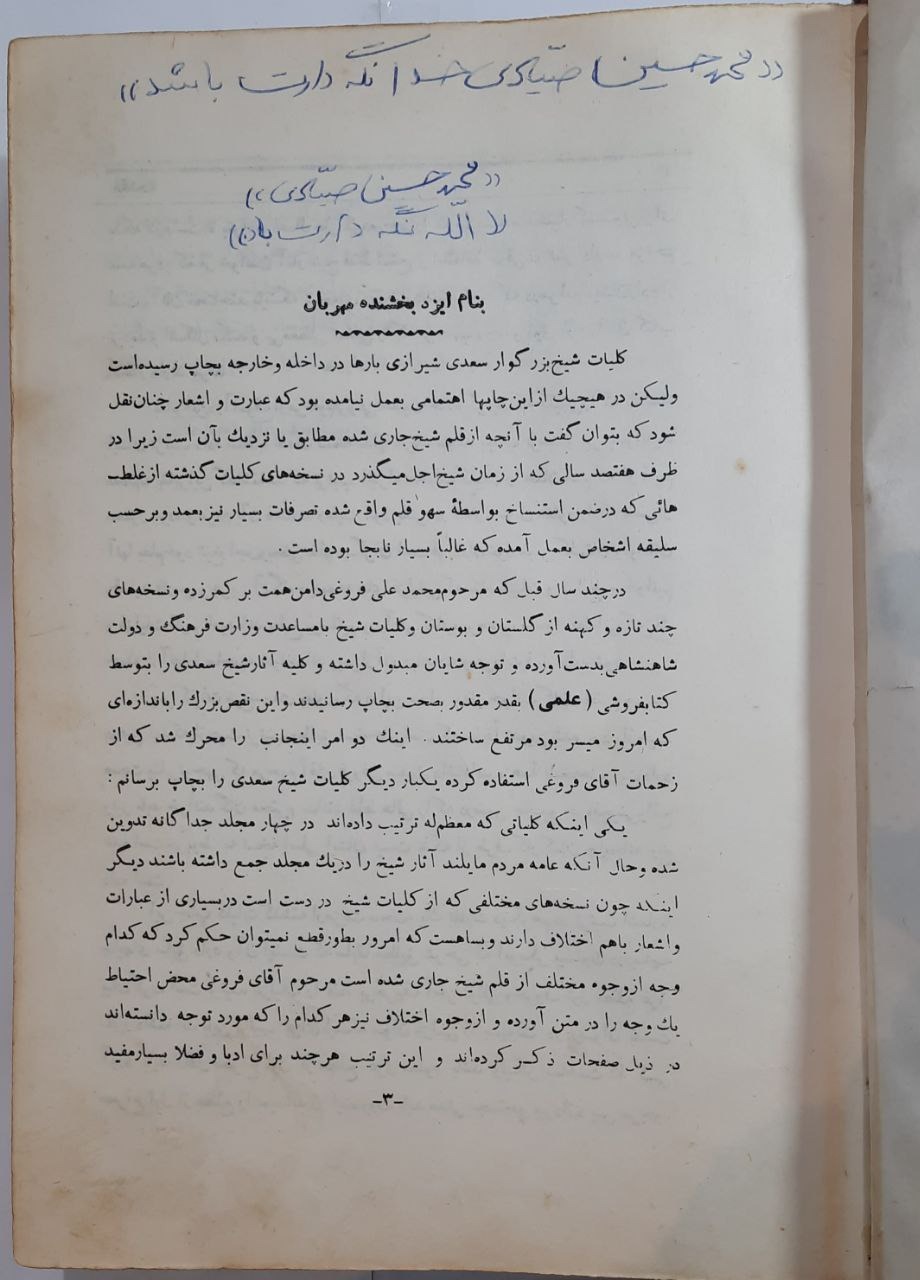 «محمد حسین صیّادی خدا نگه دارت باشد»
«محمد حسین صیّادی»
لا اللّه نگه دارت باد»
بنام ایزد بخشنده مهربان
کلیات شیخ بزرگوار سعدی شیرازی بارها در داخله وخارجه بچاپ رسیده‌است
ولیکن در هیچیك ازاین‌چاپها اهتمامی بعمل نیامده بود که عبارت و اشعار چنان‌نقل
شود که بتوان گفت با آنچه ازقلم شیخ‌جاری شده مطابق یا نزدیك بآن است زیرا در
ظرف هفتصد سالی که از زمان شیخ‌اجل‌میگذرد در نسخه‌های کلیات گذشته ازغلط‌ـ
هائی که درضمن استنساخ بواسطهٔ سهو قلم واقع شده تصرفات بسیار نیز بعمد وبرحسب
سلیقه اشخاص بعمل آمده که غالباً بسیار نابجا بوده است .
درچند سال قبل که مرحوم‌محمد علی فروغی‌دامن‌همت بر کمرزده ونسخه‌های
چند تازه و کهنه از گلستان و بوستان وکلیات شیخ بامساعدت وزارت فرهنگ و دولت
شاهنشاهی بدست‌آورده و توجه شایان مبدول داشته و کلیه آثارشیخ سعدی را بتوسط
کتابفروشی (علمی) بقدر مقدور بصحت بچاپ رسانیدند واین نقص‌بزرك راباندازه‌ای
که امروز میسر بود مرتفع ساختند . اینك دو امر اینجانب را محرك شد که از
زحمات آقای فروغی استفاده کرده یکبار دیگر کلیات شیخ سعدی را بچاپ برسانم :
یکی اینکه کلیاتی که معظم‌له ترتیب داده‌اند در چهار مجلد جداگانه تدوین
شده وحال آنکه عامه مردم مایلند آثار شیخ را دریك مجلد جمع داشته باشند دیگر
اینکه چون نسخه‌های مختلفی که از کلیات شیخ در دست است دربسیاری از عبارات
واشعار باهم اختلاف دارند وبساهست که امرور بطورقطع نمیتوان حکم کرد که کدام
وجه ازوجوه مختلف از قلم شیخ جاری شده است مرحوم آقای فروغی محض احتیاط
یك وجه را در متن آورده و ازوجوه اختلاف نیزهر کدام را که مورد توجه دانسته‌اند
در ذیل صفحات ذکر کرده‌اند و این ترتیب هرچند برای ادبا و فضلا بسیارمفید
-۳-